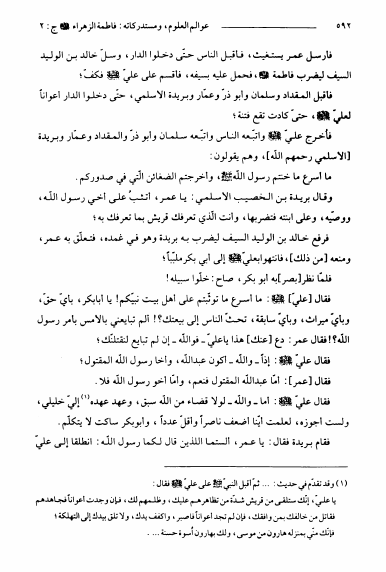 ٥٩٢ عوالم العلوم، ومستدركاته: فاطمة الزهراء ﷺ ج: ٢
فأرسل عمر يستغيث، فأقبل الناس حتّى دخلوا الدار، وسلّ خالد بن الوليد
السيف ليضرب فاطمة ﷺ، فحمل عليه بسيفه، فأقسم على عليّ ﷺ فكفّ؛
فأقبل المقداد وسلمان وأبو ذرّ وعمّار وبريدة الاسلمي، حتّى دخلوا الدار أعواناً
لعليّ ﷺ، حتّى كادت تقع فتنة؛
فأُخرج عليّ ﷺ واتّبعه الناس واتّبعه سلمان وأبو ذرّ والمقداد وعمّار وبريدة
الاسلمي [رحمهم اللّه]، وهم يقولون:
ما أسرع ما خنتم رسول اللّه ﷺ، وأخرجتم الضغائن الّتي في صدوركم.
وقال بريدة بن الخصيب الاسلمي: يا عمر، أتثبّ على أخي رسول اللّه،
ووصيّه، وعلى ابنته فتضربها، وأنت الّذي تعرفك قريش بما تعرفك به؛
فرفع خالد بن الوليد السيف ليضرب به بريدة وهو في غمده، فتعلّق به عمر،
ومنعه [من ذلك]، فانتهوا بعليّ ﷺ إلى أبي بكر ملبّباً؛
فلمّا نظر [بصر] به أبو بكر، صاح: خلّوا سبيله!
فقال [عليّ] ﷺ: ما أسرع ما توثّبتم على أهل بيت نبيّكم! يا أبابكر، بأيّ حقّ،
وبأيّ ميراث، وبأيّ سابقة، تحثّ الناس إلى بيعتك؟! ألم تبايعني بالأمس بأمر رسول
اللّه؟! فقال عمر: دع [عنك] هذا يا عليّ ـ فواللّه ـ إن لم تبايع لنقتلنّك؛
فقال عليّ ﷺ: إذاً ـ واللّه ـ أكون عبداللّه، وأخا رسول اللّه المقتول؛
فقال [عمر]: أمّا عبداللّه المقتول فنعم، وأمّا أخو رسول اللّه فلا.
فقال عليّ ﷺ: أما ـ واللّه ـ لولا قضاء من اللّه سبق، وعهد عهده(١) إليّ خليلي،
ولست أجوزه، لعلمت أيّنا أضعف ناصراً وأقلّ عدداً، وأبوبكر ساكت لا يتكلّم.
فقام بريدة فقال: يا عمر، ألستما اللذين قال لكما رسول اللّه: انطلقا إلى عليّ
(١) وقد تقدّم في حديث: ... ثمّ أقبل النبيّ ﷺ على عليّ ﷺ فقال:
يا عليّ، إنّك ستلقى من قريش شدّة من تظاهرهم عليك، وظلمهم لك، فإن وجدت أعواناً فجاهدهم
فقاتل من خالفك بمن وافقك، فإن لم تجد أعواناً فاصبر، واكفف يدك، ولا تلق بيدك إلى التهلكة؛
فإنّك منّي بمنزلة هارون من موسى، ولك بهارون أُسوة حسنة ... .